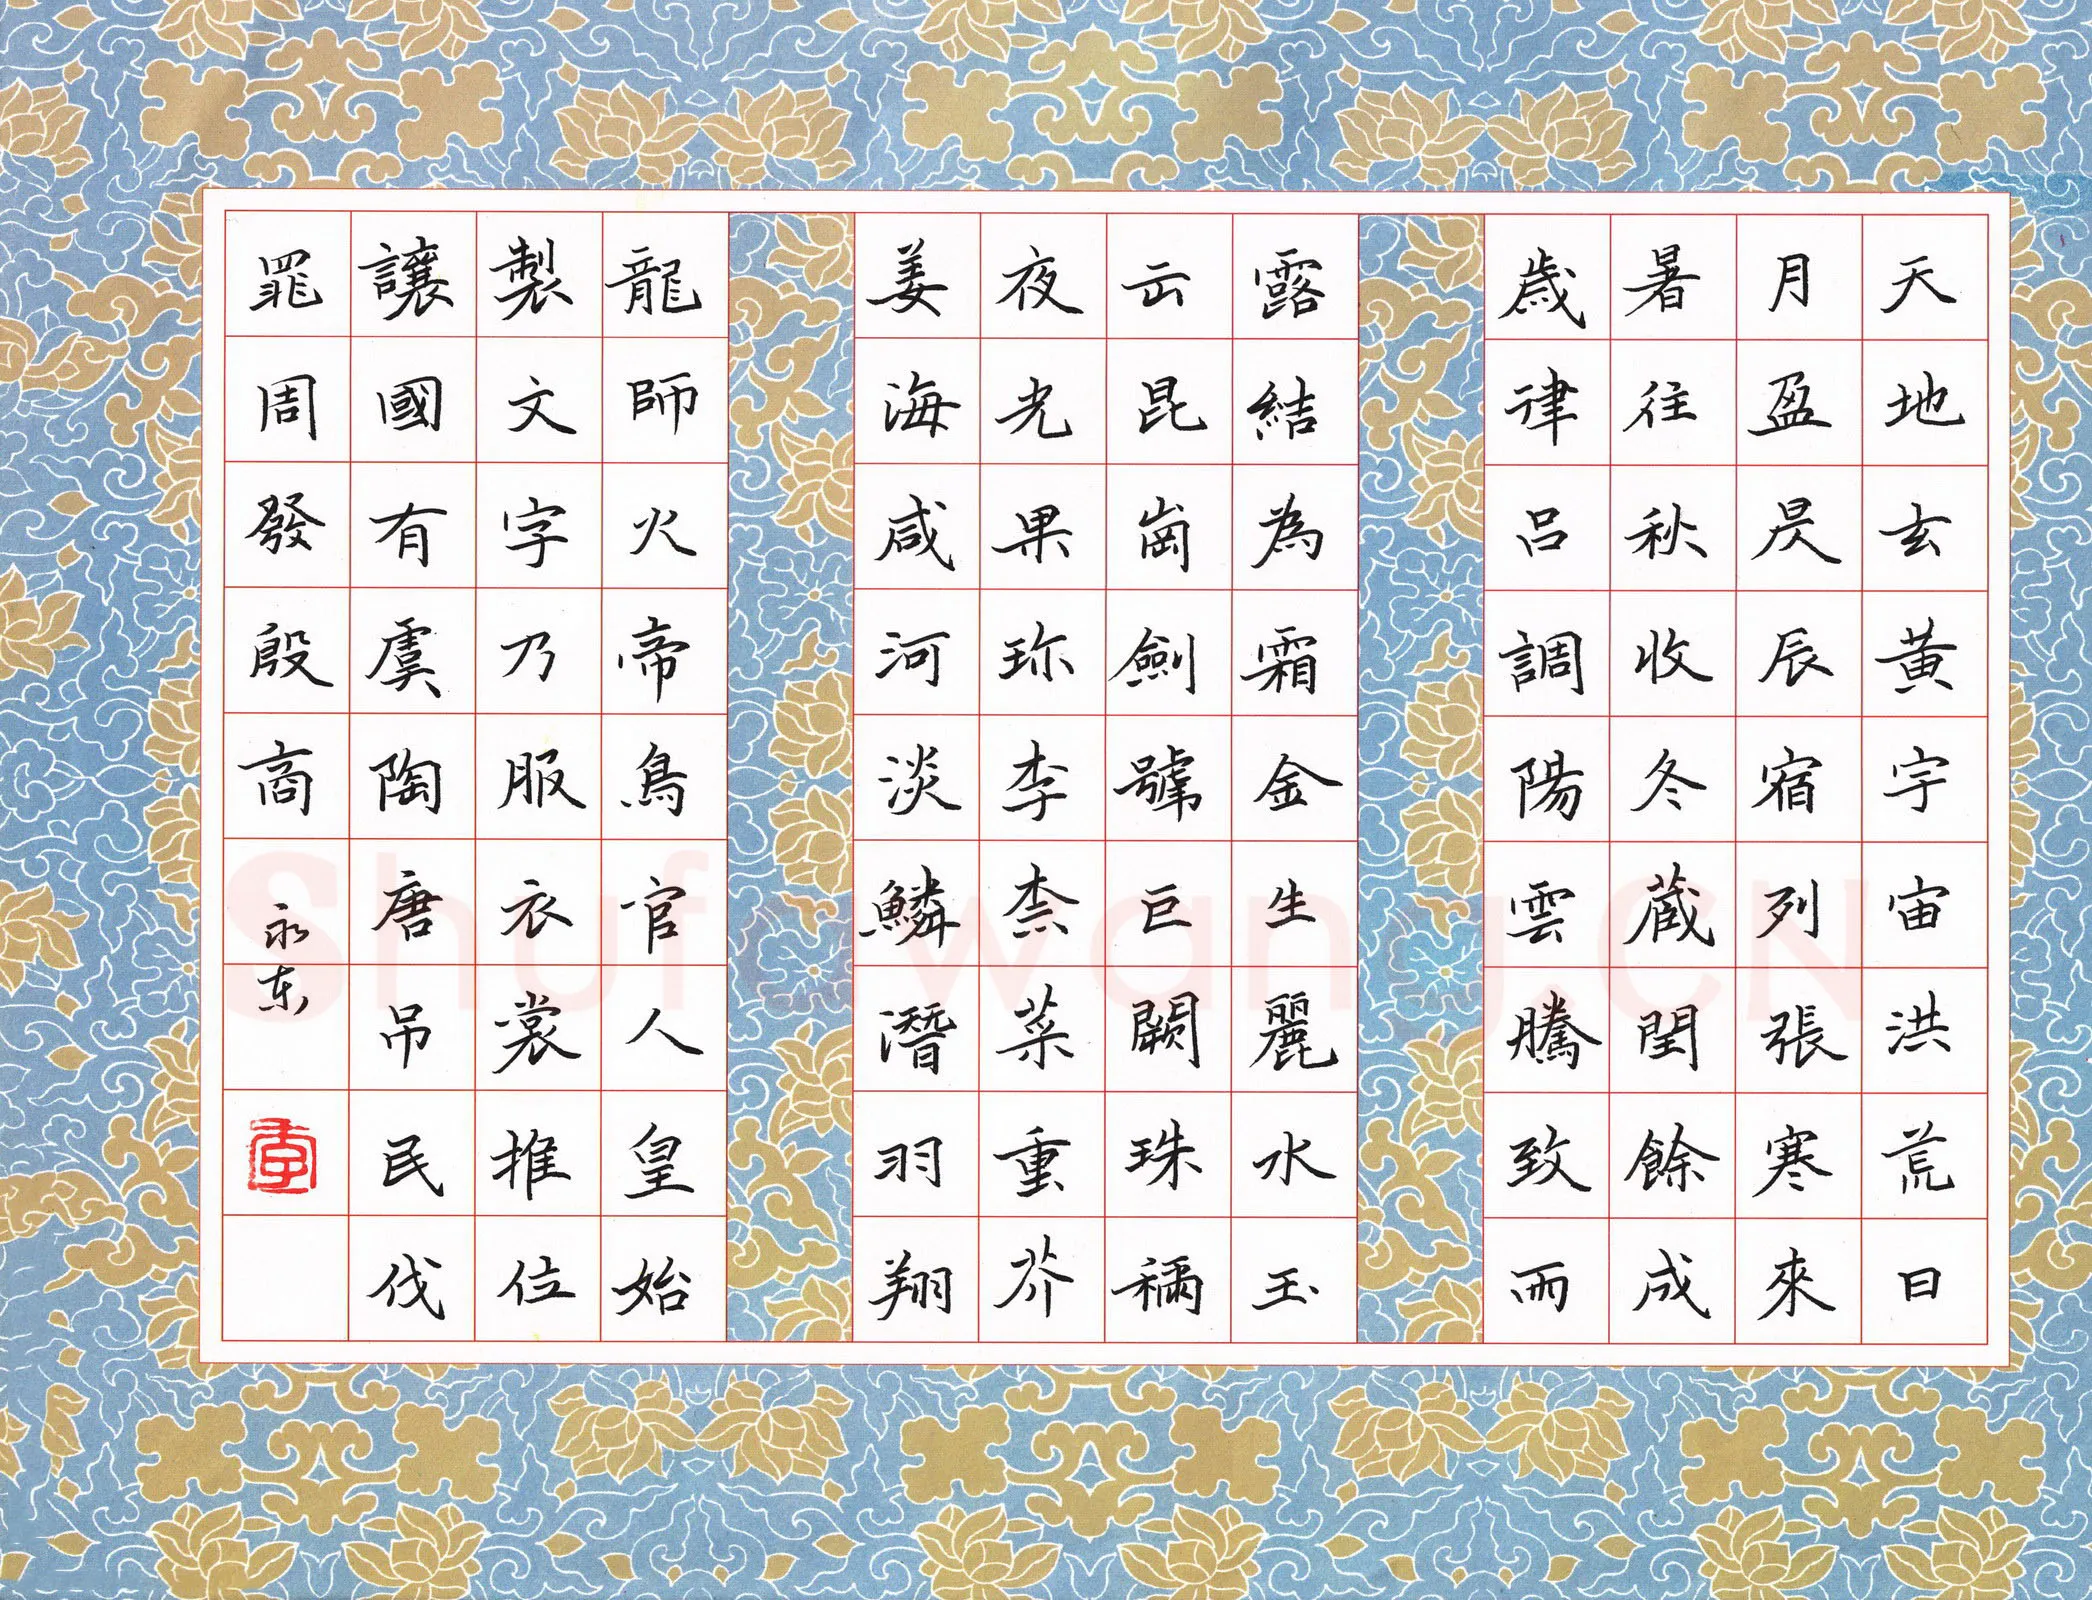 天地玄黃宇宙洪荒日
月盈昃辰宿列張寒來
暑往秋收冬藏閏餘成
歲律呂調陽雲騰致雨
露結為霜金生麗水玉
出昆崗劍號巨闕珠稱
夜光果珍李柰菜重芥
姜海咸河淡鱗潛羽翔
龍師火帝鳥官人皇始
製文字乃服衣裳推位
讓國有虞陶唐吊民伐
罪周發殷商
永东
李
Shufawang.CN